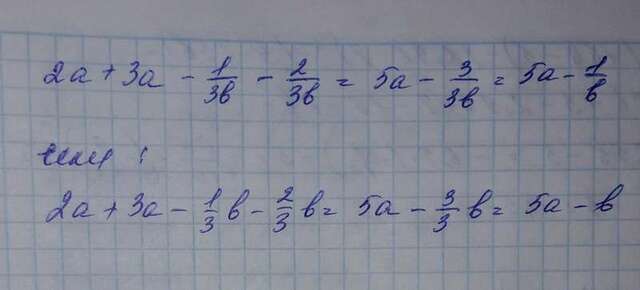 2a + 3a - 1/3в - 2/3в = 5a - 3/3в = 5a - 1/в
или :
2a + 3a - 1/3 в - 2/3 в = 5a - 3/3 в = 5a - в